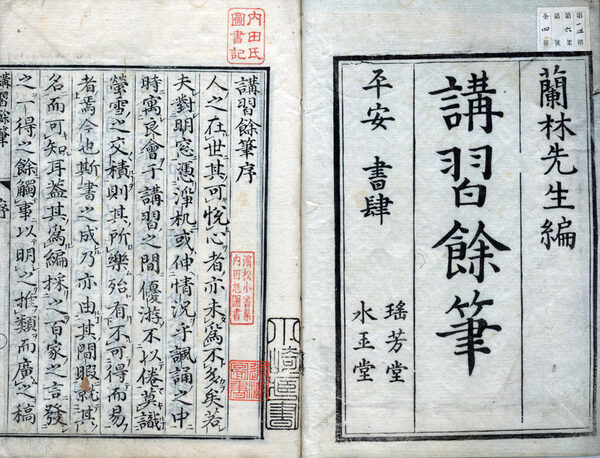 蘭林先生編
講習餘筆
平安 書肆
瑤芳堂
水玉堂
全四冊
内田氏
圖書記
講習餘筆序
人之在世其可悅心者亦未爲不多矣若
夫對明窓憑淨机或伸情況乎諷誦之中
時寓良會于講習之間優游不以倦莫識
螢雪之交積則其所樂殆有不可得而易
者焉今也斯書之成乃亦由其間暇就其
名而可知耳蓋其爲編抹之百家之言發
之一得之餘觸事以明之推類而廣之稿
講習餘筆 序
濱松小書巢
内田氏圖書